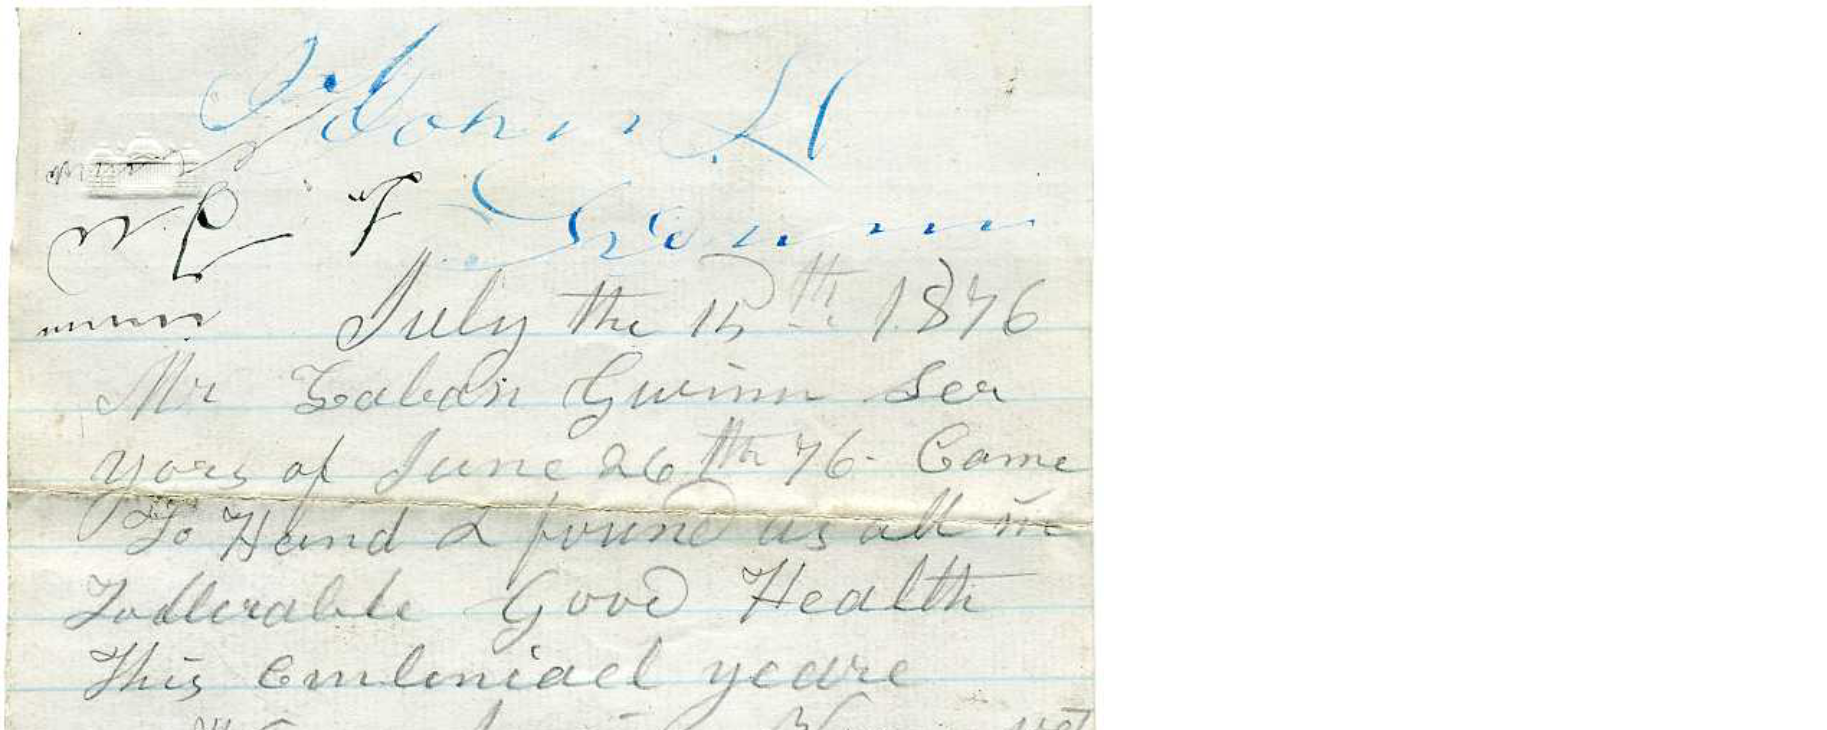 John H
W. P. F
July the 15th 1876
Mr Laban Gwinn Ser
yors of June 26th 76. Came
To Hand & found us all in
Tollerable Good Health
This Centeniael yeare